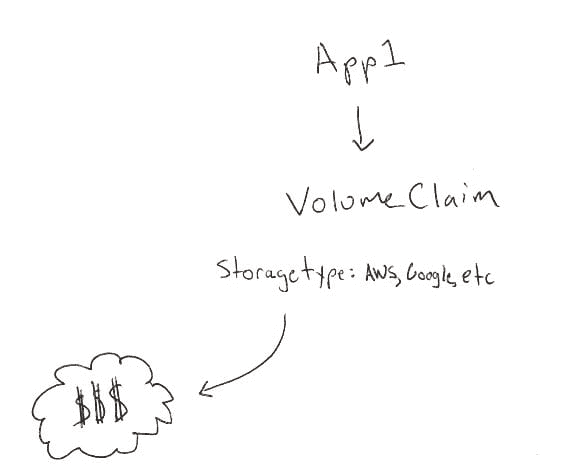 App1
VolumeClaim
Storagetype: AWS, Google, etc
$$$